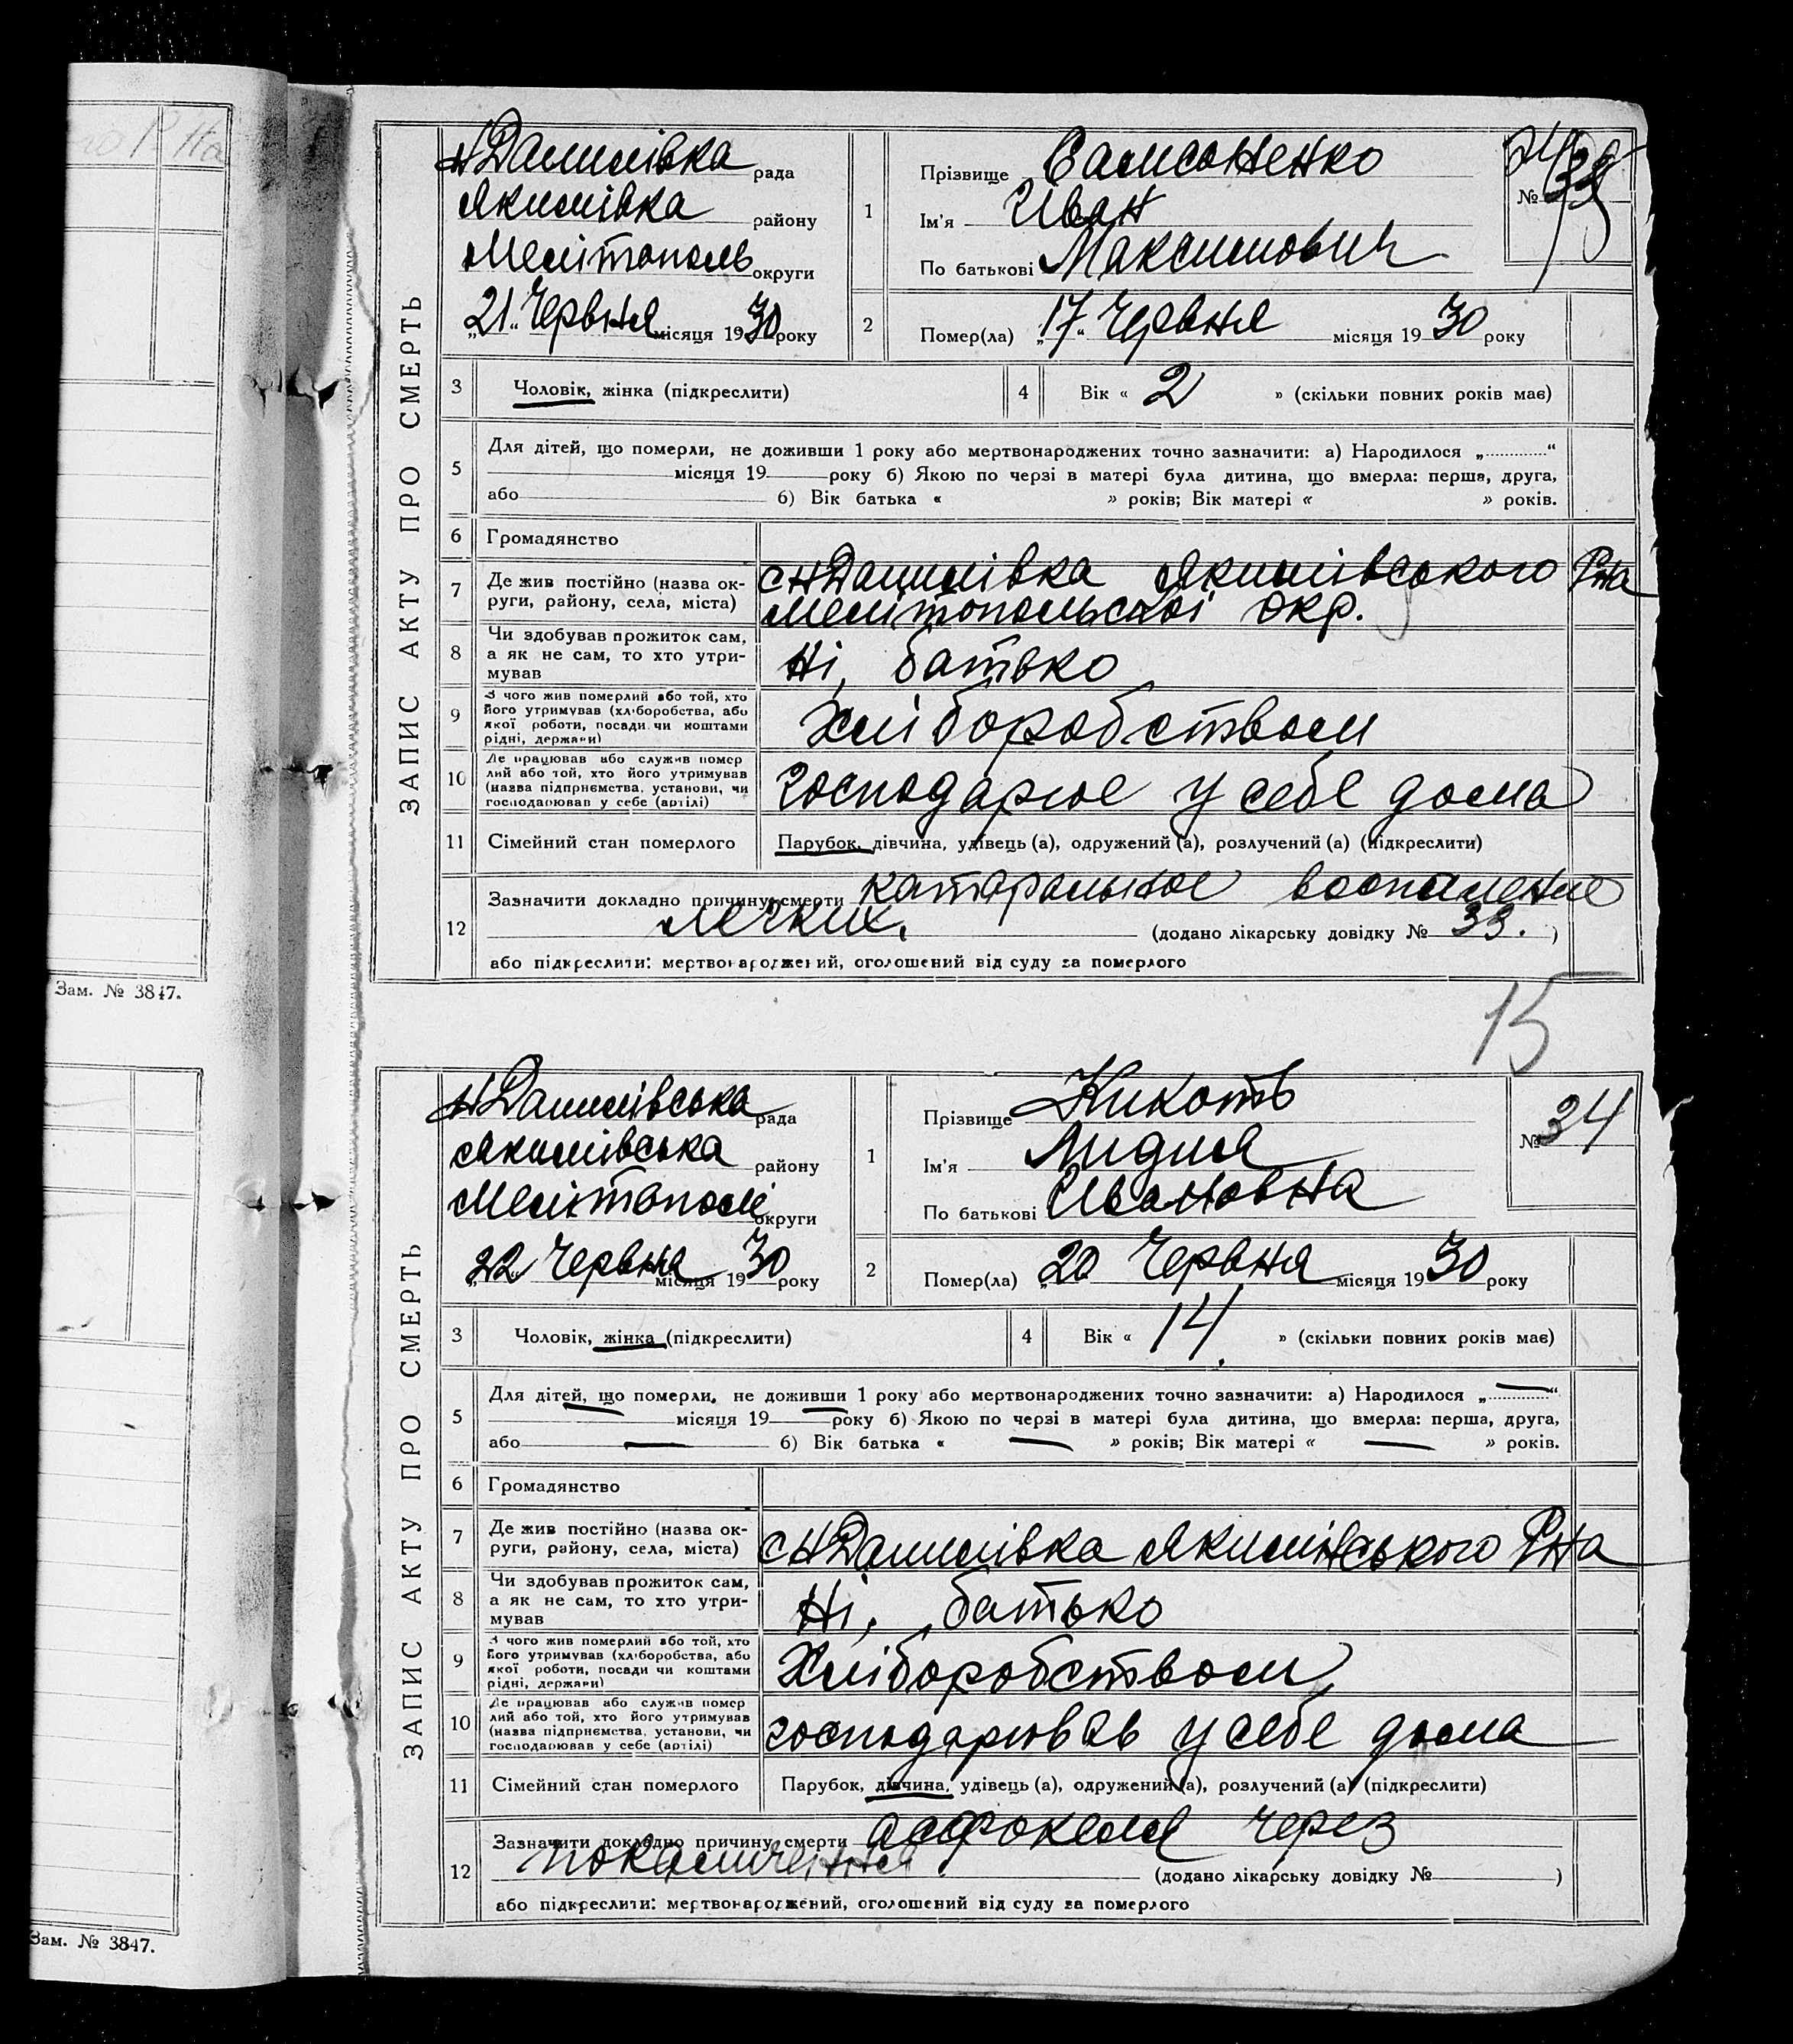 ЗАПИС АКТУ ПРО СМЕРТЬ
Н Данилівка рада
Якимівка району
Мелітополь округи
„21“ Червня місяця 1930 року
1
Прізвище Самсоненко
Ім'я Иван
По батькові Максимович
№ 33
2
Помер(ла) „17“ Червня місяця 1930 року
3 Чоловік, жінка (підкреслити)
4 Вік « 2 » (скільки повних років має)
5
Для дітей, що померли, не доживши 1 року або мертвонароджених точно зазначити: а) Народилося „ “
місяця 19 року б) Якою по черзі в матері була дитина, що вмерла: перша, друга,
або б) Вік батька « » років; Вік матері « » років.
6 Громадянство
7 Де жив постійно (назва ок-
руги, району, села, міста)
с Н Данилівка Якимівського Р-на
Мелітопольскої окр.
8 Чи здобував прожиток сам,
а як не сам, то хто утри-
мував
Ні, батько
9 З чого жив померлий або той, хто
його утримував (хліборобства, або
якої роботи, посади чи коштами
рідні, держави)
Хліборобством
10 Де працював або служив помер
лий або той, хто його утримував
(назва підприємства, установи, чи
господарював у себе (артілі)
господарює у себе дома
11 Сімейний стан померлого
Парубок, дівчина, удівець (а), одружений (а), розлучений (а) (підкреслити)
12
Зазначити докладно причину смерти катаральное воспаление
легких.
(додано лікарську довідку № 33. )
або підкреслити: мертвонароджений, оголошений від суду за померлого
Зам. № 3847.
15
ЗАПИС АКТУ ПРО СМЕРТЬ
Н Данилівська рада
Якимівська району
Мелітополі округи
„22“ Червня місяця 1930 року
1
Прізвище Кикоть
Ім'я Лидия
По батькові Ивановна
№ 34
2
Помер(ла) „20 Червня місяця 1930 року
3 Чоловік, жінка (підкреслити)
4 Вік « 14 » (скільки повних років має)
5
Для дітей, що померли, не доживши 1 року або мертвонароджених точно зазначити: а) Народилося „—“
місяця 19 року б) Якою по черзі в матері була дитина, що вмерла: перша, друга,
або — б) Вік батька « — » років; Вік матері « — » років.
6 Громадянство
7 Де жив постійно (назва ок-
руги, району, села, міста)
с Н Данилівка Якимівського Р-на
8 Чи здобував прожиток сам,
а як не сам, то хто утри-
мував
Ні, батько
9 З чого жив померлий або той, хто
його утримував (хліборобства, або
якої роботи, посади чи коштами
рідні, держави)
Хліборобством
10 Де працював або служив помер
лий або той, хто його утримував
(назва підприємства, установи, чи
господарював у себе (артілі)
господарював у себе дома
11 Сімейний стан померлого
Парубок, дівчина, удівець (а), одружений (а), розлучений (а) (підкреслити)
12
Зазначити докладно причину смерти через
покалічення
(додано лікарську довідку № )
або підкреслити: мертвонароджений, оголошений від суду за померлого
Зам. № 3847.